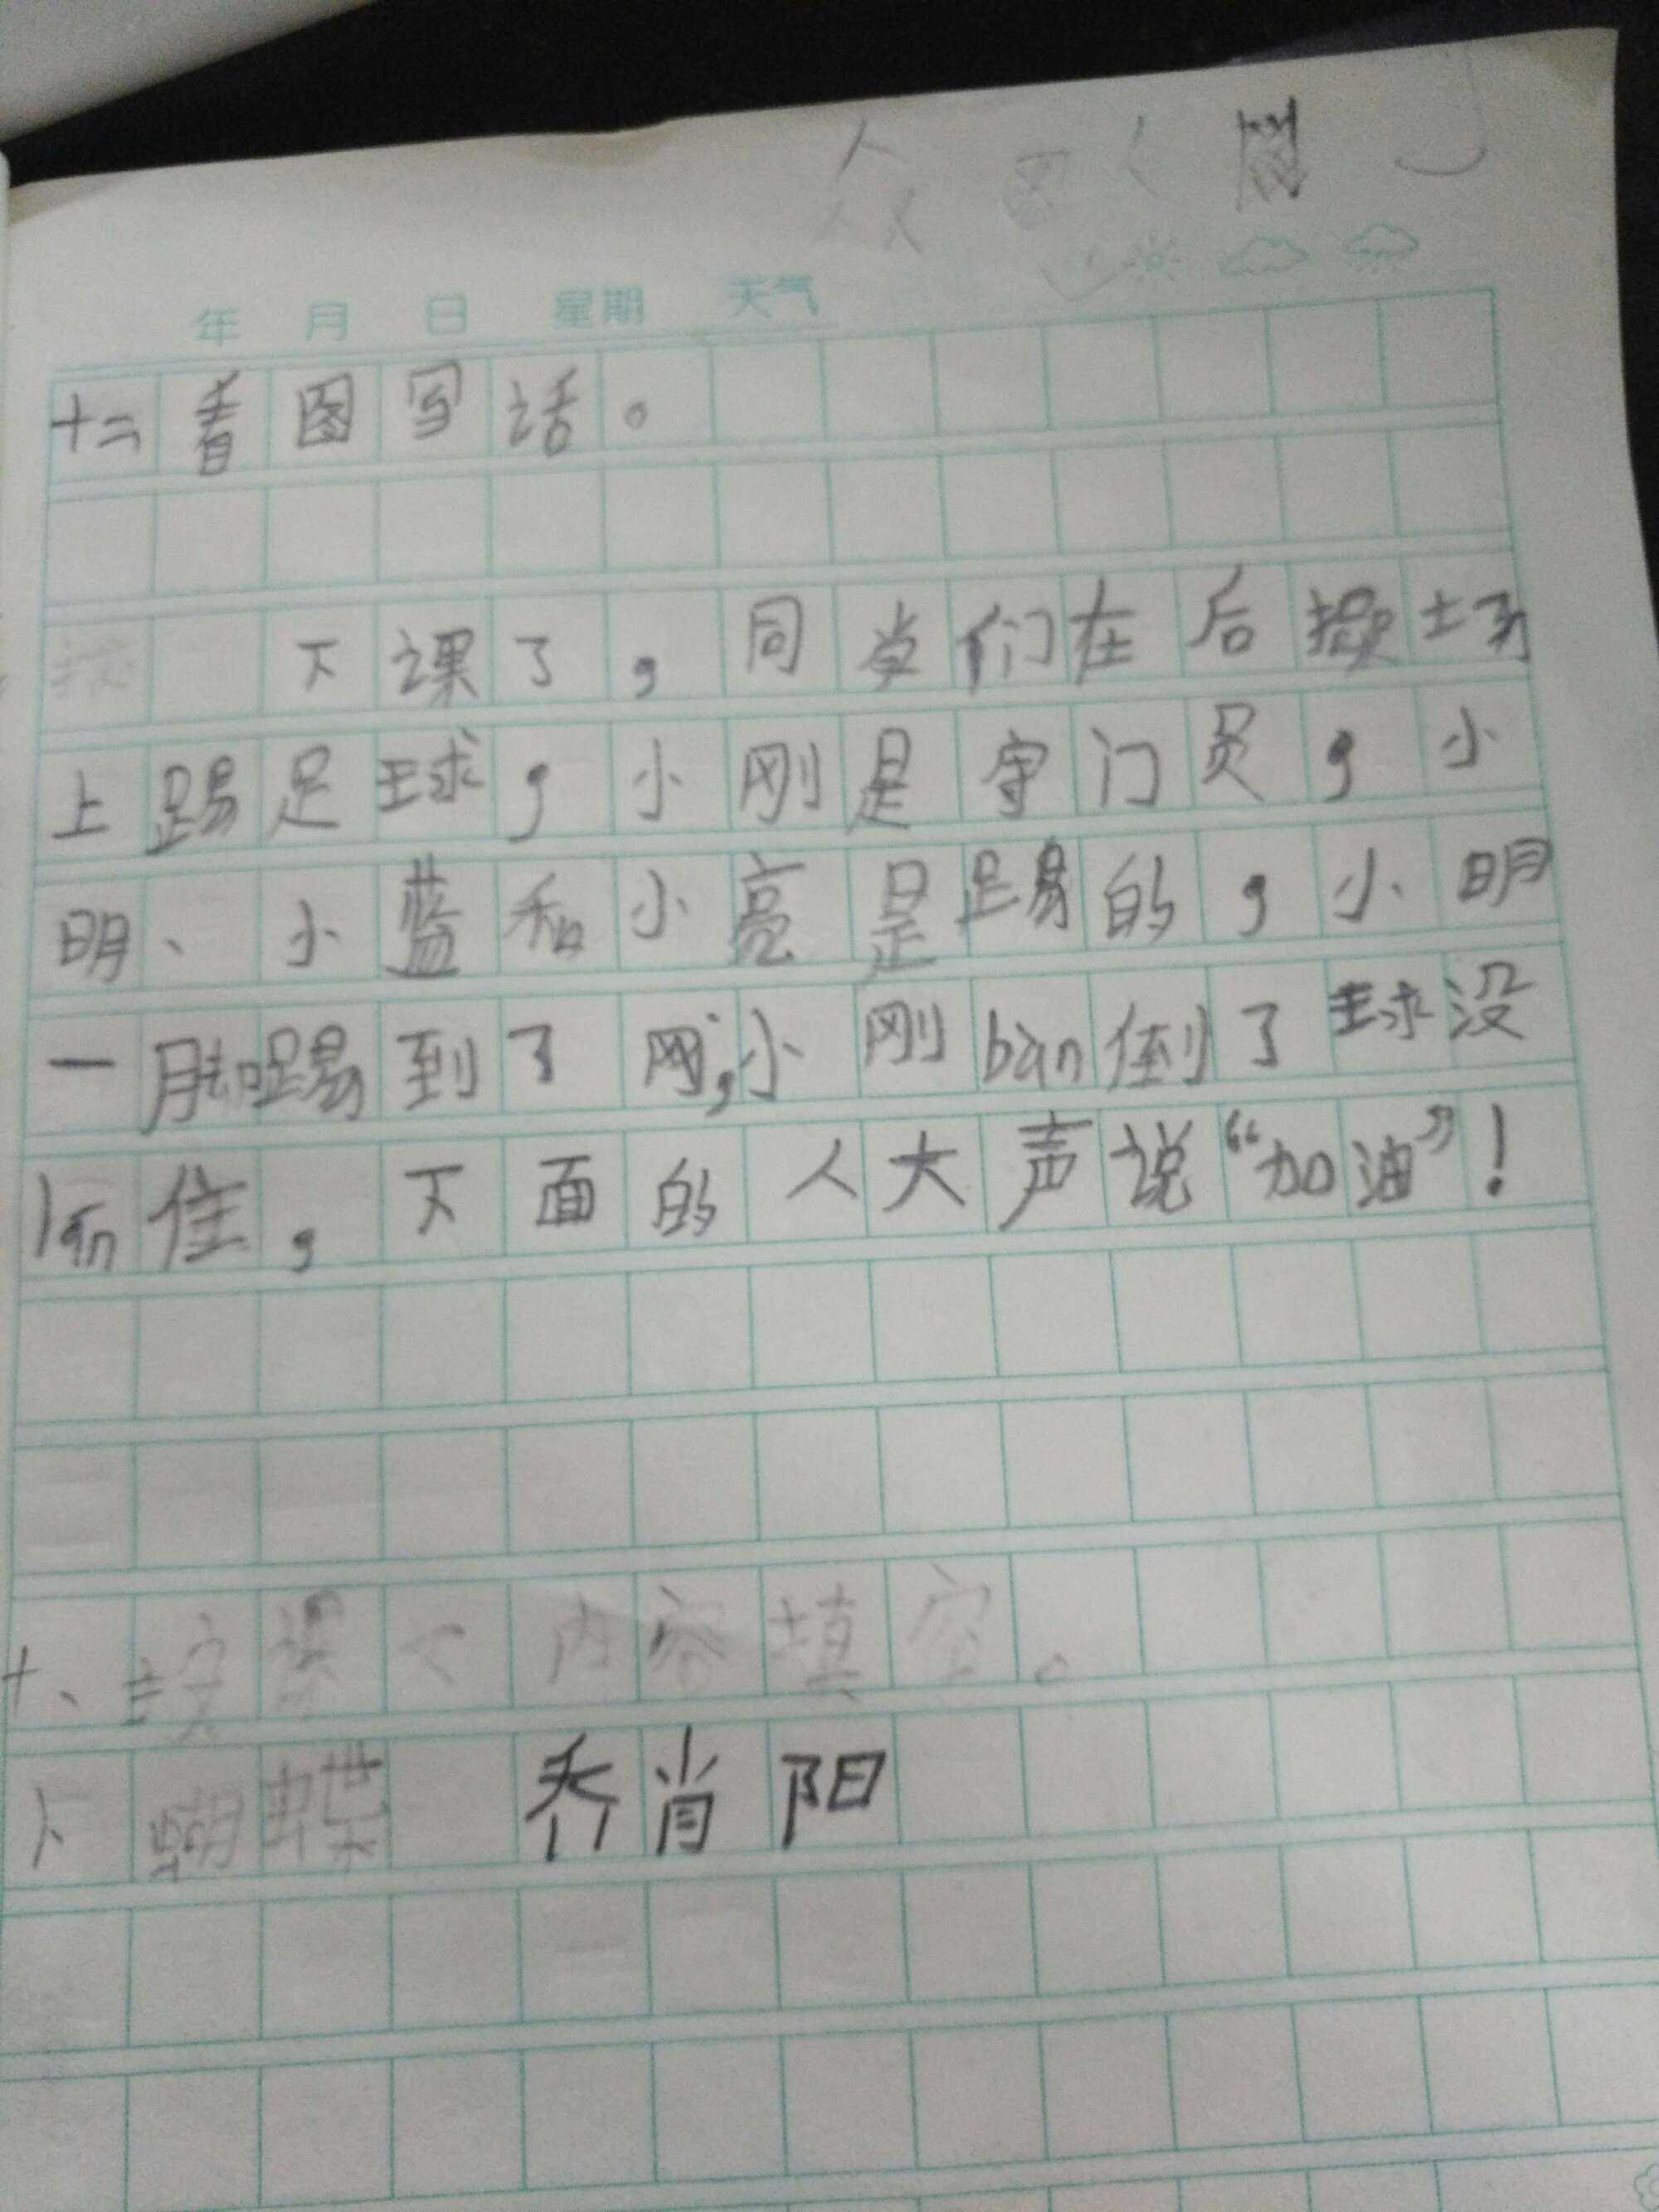 年 月 日 星期 天气
十二看图写话。
下课了，同学们在后操场
上踢足球，小刚是守门员，小
明、小蓝和小亮是踢的，小明
一脚踢到了网，小刚bàn倒了球没
lán住，下面的人大声说“加油”！
十、 课 内容填空。
蝴蝶 乔肖阳